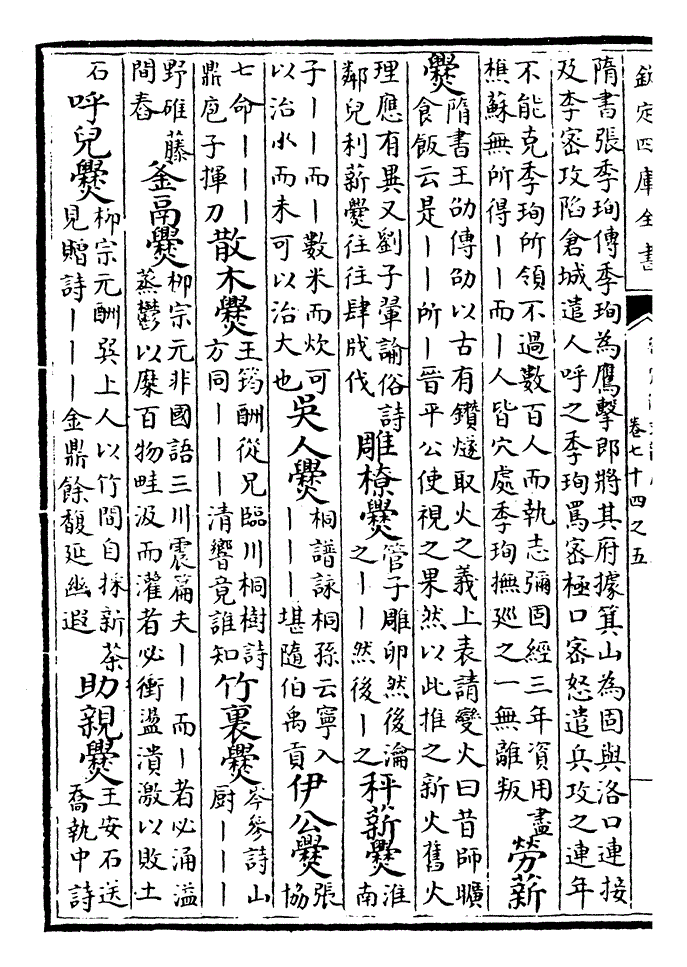 欽定四庫全書
卷七十四之五
隋書張季珣傳季珣為鷹擊郎將其府據箕山為固與洛口連接
及李密攻陷倉城遣人呼之季珣罵密極口密怒遣兵攻之連年
不能克季珣所領不過數百人而執志彌固經三年資用盡
樵蘇無所得丨丨而丨人皆穴處季珣撫廵之一無離叛
勞薪
爨
隋書王劭傳劭以古有鑽燧取火之義上表請變火曰昔師曠
食飯云是丨丨所丨晉平公使視之果然以此推之新火舊火
理應有異又劉子翬諭俗詩
鄰兒利薪爨往往肆戕伐
雕橑爨
管子雕卵然後瀹
之丨丨然後丨之
秤薪爨
淮
南
子丨丨而丨數米而炊可
以治小而未可以治大也
吳人爨
桐譜詠桐孫云寧入
丨丨丨堪隨伯禹貢
伊公爨
張
協
七命丨丨丨
鼎庖子揮刀
散木爨
王筠酬從兄臨川桐樹詩
方同丨丨丨清響竟誰知
竹裏爨
岑參詩山
厨丨丨丨
野碓藤
間舂
釜鬲爨
柳宗元非國語三川震篇夫丨丨而丨者必涌溢
蒸鬱以糜百物畦汲而灌者必衝盪潰激以敗土
石
呼兒爨
柳宗元酬巽上人以竹間自採新茶
見贈詩丨丨丨金鼎餘馥延幽遐
助親爨
王安石送
喬執中詩